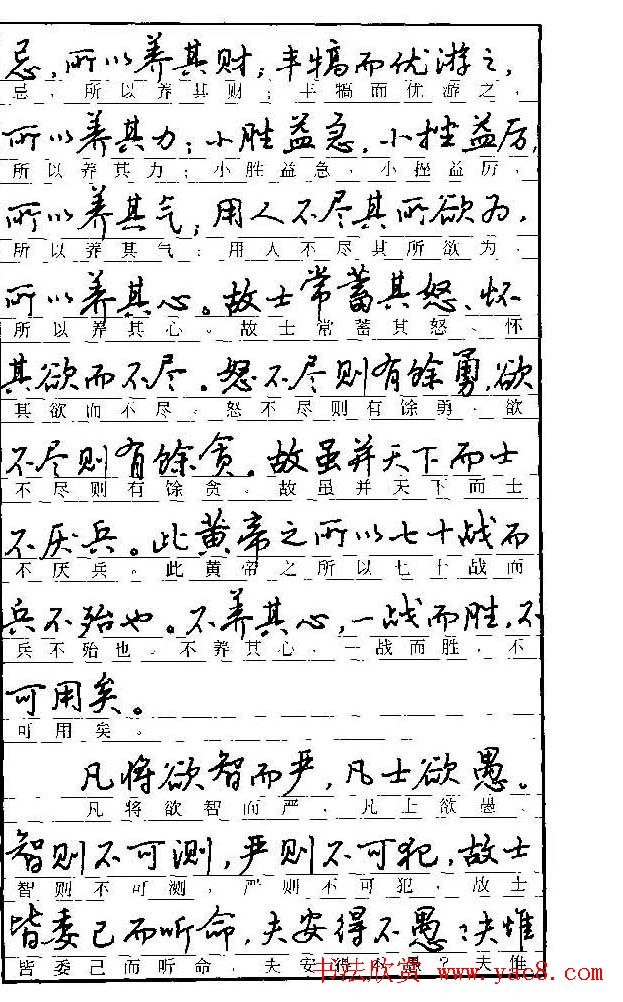 忌，所以养其财；丰犒而优游之，
忌，所以养其财；丰犒而优游之，
所以养其力；小胜益急，小挫益厉，
所以养其力；小胜益急，小挫益厉，
所以养其气；用人不尽其所欲为，
所以养其气；用人不尽其所欲为，
所以养其心。故士常蓄其怒、怀
所以养其心。故士常蓄其怒、怀
其欲而不尽。怒不尽则有馀勇，欲
其欲而不尽。怒不尽则有馀勇，欲
不尽则有馀贪。故虽并天下而士
不尽则有馀贪。故虽并天下而士
不厌兵。此黄帝之所以七十战而
不厌兵。此黄帝之所以七十战而
兵不殆也。不养其心，一战而胜，不
兵不殆也。不养其心，一战而胜，不
可用矣。
可用矣。
凡将欲智而严，凡士欲愚。
凡将欲智而严，凡士欲愚。
智则不可测，严则不可犯，故士
智则不可测，严则不可犯，故士
皆委己而听命，夫安得不愚？夫惟
皆委己而听命，夫安得不愚？夫惟
书法欣赏 www.yac8.com